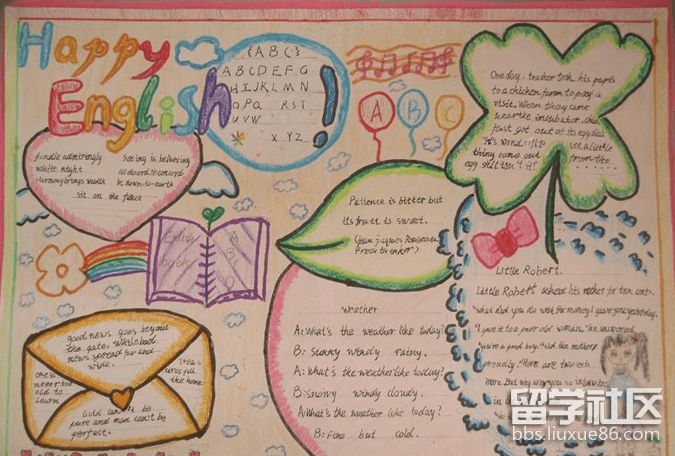 Happy
English!
{A B C}
A B C D E F G
H I J K L M N
O P Q R S T
U V W
X Y Z
A B C
One day, teacher took his pupils
to a chicken farm to pay a
visit. When they came
near the incubator, the
just got out of its egg shell
thing come out
egg shell, isn't it!
from the
Seeing is believing
white night
be down-to-earth
Harmony brings wealth
sit on the fence
Patience is bitter but
its fruit is sweet.
(Jean Jacques Rousseau,
French thinker)
A
B
good news goes beyond
the gate, while bad
news spread far and
wide.
One is
never too
old to
learn
fill
the home.
Gold can't be
pure and man can't be
perfect.
weather
A: What's the weather like today?
B: Sunny windy rainy.
A: What's the weather like today?
B: Snowy windy cloudy.
A: What's the weather like today?
B: Fine but cold.
Little Robert.
Little Robert asked his mother for two cent.
"What did you do with the money I gave you yesterday.
"I gave it to a poor old woman," he answered
"you're a good boy," said the mother
proudly. "Here are two cents
more. But why are you so
留学社区
bbs.liuxue86.com